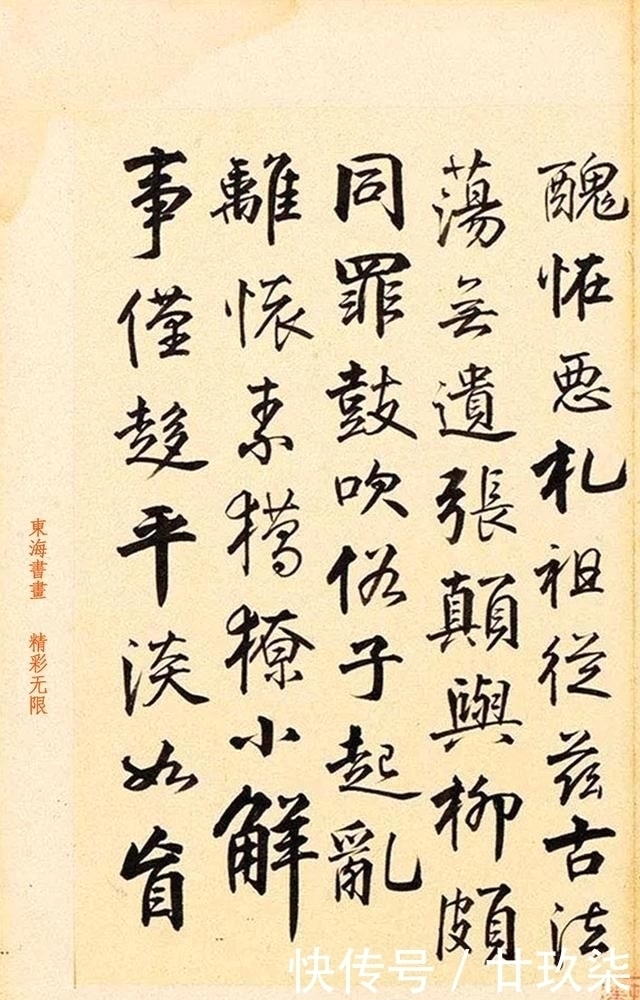 醜恠悪札祖從茲古法
蕩無遺張顛與柳頗
同罪鼓吹俗子起亂
離懐素獦獠小解
事僅趍平淡如盲
東海書畫 精彩无限
快传号 / 廿玖柒